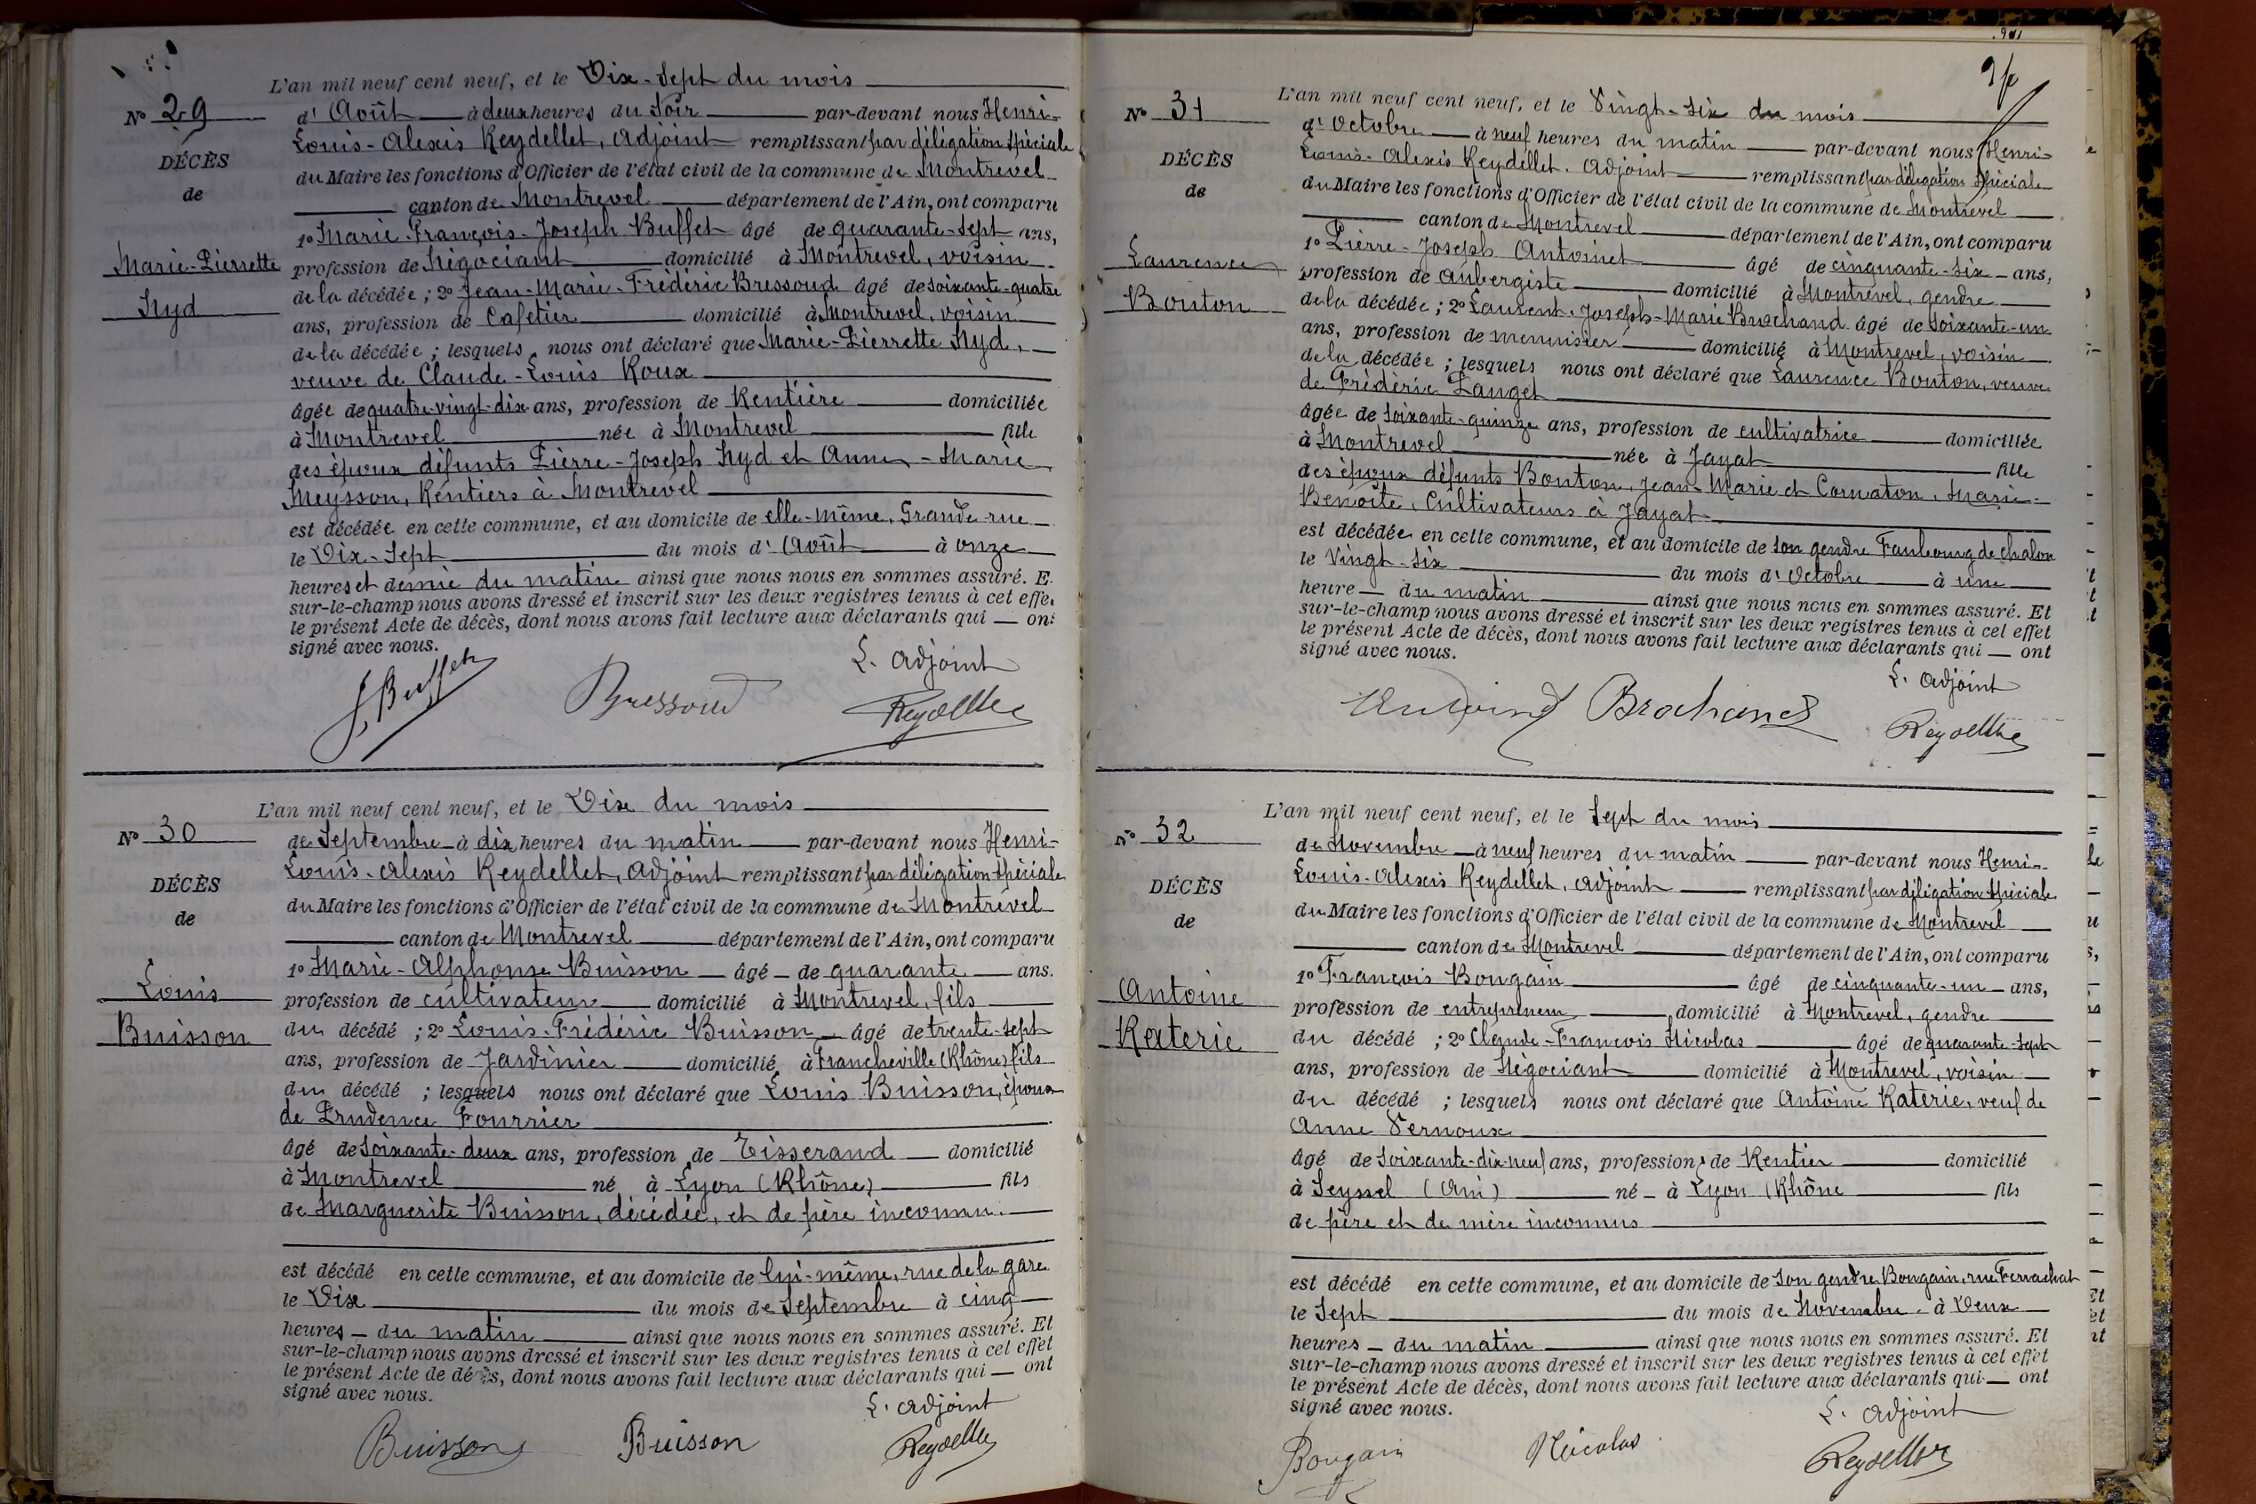 L'an mil neuf cent neuf, et le Dix-Sept du mois
No 29
d'Août à deux heures du Soir par-devant nous Henri-
Louis-Alexis Reydellet, Adjoint remplissant par délégation spéciale
du Maire les fonctions d'Officier de l'état civil de la commune de Montrevel
canton de Montrevel département de l'Ain, ont comparu
DÉCÈS
de
Marie-Pierrette
Nyd
1o Marie-François-Joseph Buffet âgé de quarante-sept ans,
profession de Négociant domicilié à Montrevel, voisin
de la décédée ; 2o Jean-Marie-Frédéric Bressoud âgé de soixante-quatre
ans, profession de Cafetier domicilié à Montrevel, voisin
de la décédée ; lesquels nous ont déclaré que Marie-Pierrette Nyd,
veuve de Claude-Louis Roux
âgée de quatre-vingt-dix ans, profession de Rentière domiciliée
à Montrevel née à Montrevel fille
des époux défunts Pierre-Joseph Nyd et Anne-Marie
Meysson, Rentiers à Montrevel
est décédée en cette commune, et au domicile de elle-même, Grande rue
le Dix-Sept du mois d'Août à onze
heures et demie du matin ainsi que nous nous en sommes assuré. E
sur-le-champ nous avons dressé et inscrit sur les deux registres tenus à cet effe
le présent Acte de décès, dont nous avons fait lecture aux déclarants qui ont
signé avec nous.
L. Adjoint
Buffet Bressoud Reydellet
L'an mil neuf cent neuf, et le Dix du mois
No 30
de Septembre à dix heures du matin par-devant nous Henri-
Louis-Alexis Reydellet, Adjoint remplissant par délégation spéciale
du Maire les fonctions d'Officier de l'état civil de la commune de Montrevel
canton de Montrevel département de l'Ain, ont comparu
DÉCÈS
de
Louis
Buisson
1o Marie-Alphonse Buisson âgé de quarante ans.
profession de cultivateur domicilié à Montrevel, fils
du décédé ; 2o Louis-Frédéric Buisson âgé de trente-sept
ans, profession de Jardinier domicilié à Francheville (Rhône) fils
du décédé ; lesquels nous ont déclaré que Louis Buisson, époux
de Prudence Fourrier
âgé de soixante-deux ans, profession de Tisserand domicilié
à Montrevel né à Lyon (Rhône) fils
de Marguerite Buisson, décédée, et de père inconnu.
est décédé en cette commune, et au domicile de lui-même, rue de la gare
le Dix du mois de Septembre à cinq
heures du matin ainsi que nous nous en sommes assuré. Et
sur-le-champ nous avons dressé et inscrit sur les deux registres tenus à cet effet
le présent Acte de décès, dont nous avons fait lecture aux déclarants qui ont
signé avec nous.
L. Adjoint
Buisson Buisson Reydellet
L'an mil neuf cent neuf, et le Vingt-six du mois
No 31
d'Octobre à neuf heures du matin par-devant nous Henri-
Louis-Alexis Reydellet. Adjoint remplissant par délégation spéciale
du Maire les fonctions d'Officier de l'état civil de la commune de Montrevel
canton de Montrevel département de l'Ain, ont comparu
DÉCÈS
de
Laurence
Bouton
1o Pierre-Joseph Antoinet âgé de cinquante-six ans,
profession de Aubergiste domicilié à Montrevel, gendre
de la décédée ; 2o Laurent-Joseph-Marie Brochand âgé de soixante-un
ans, profession de menuisier domicilié à Montrevel, voisin
de la décédée ; lesquels nous ont déclaré que Laurence Bouton, veuve
de Frédéric Panget
âgée de soixante-quinze ans, profession de cultivatrice domiciliée
à Montrevel née à Jayat fille
des époux défunts Bouton, Jean-Marie et Cornaton, Marie-
Benoite, Cultivateurs à Jayat
est décédée en cette commune, et au domicile de son gendre Faubourg de chalon
le Vingt-six du mois d'Octobre à une
heure du matin ainsi que nous nous en sommes assuré. Et
sur-le-champ nous avons dressé et inscrit sur les deux registres tenus à cet effet
le présent Acte de décès, dont nous avons fait lecture aux déclarants qui ont
signé avec nous.
L. Adjoint
Antoinet Brochand Reydellet
L'an mil neuf cent neuf, et le Sept du mois
No 32
de Novembre à neuf heures du matin par-devant nous Henri-
Louis-Alexis Reydellet, Adjoint remplissant par délégation spéciale
du Maire les fonctions d'Officier de l'état civil de la commune de Montrevel
canton de Montrevel département de l'Ain, ont comparu
DÉCÈS
de
Antoine
Raterie
1o François Bougain âgé de cinquante-un ans,
profession de entrepreneur domicilié à Montrevel, gendre
du décédé ; 2o Claude-François Nicolas âgé de quarante-sept
ans, profession de Négociant domicilié à Montrevel, voisin
du décédé ; lesquels nous ont déclaré que Antoine Raterie, veuf de
Anne Vernoux
âgé de soixante-dix-neuf ans, profession de Rentier domicilié
à Seyssel (Ain) né à Lyon (Rhône fils
de père et de mère inconnus
est décédé en cette commune, et au domicile de son gendre Bougain, rue Ferrachat
le Sept du mois de Novembre à Deux
heures du matin ainsi que nous nous en sommes assuré. Et
sur-le-champ nous avons dressé et inscrit sur les deux registres tenus à cet effet
le présent Acte de décès, dont nous avons fait lecture aux déclarants qui ont
signé avec nous.
L. Adjoint
Bougain Nicolas Reydellet